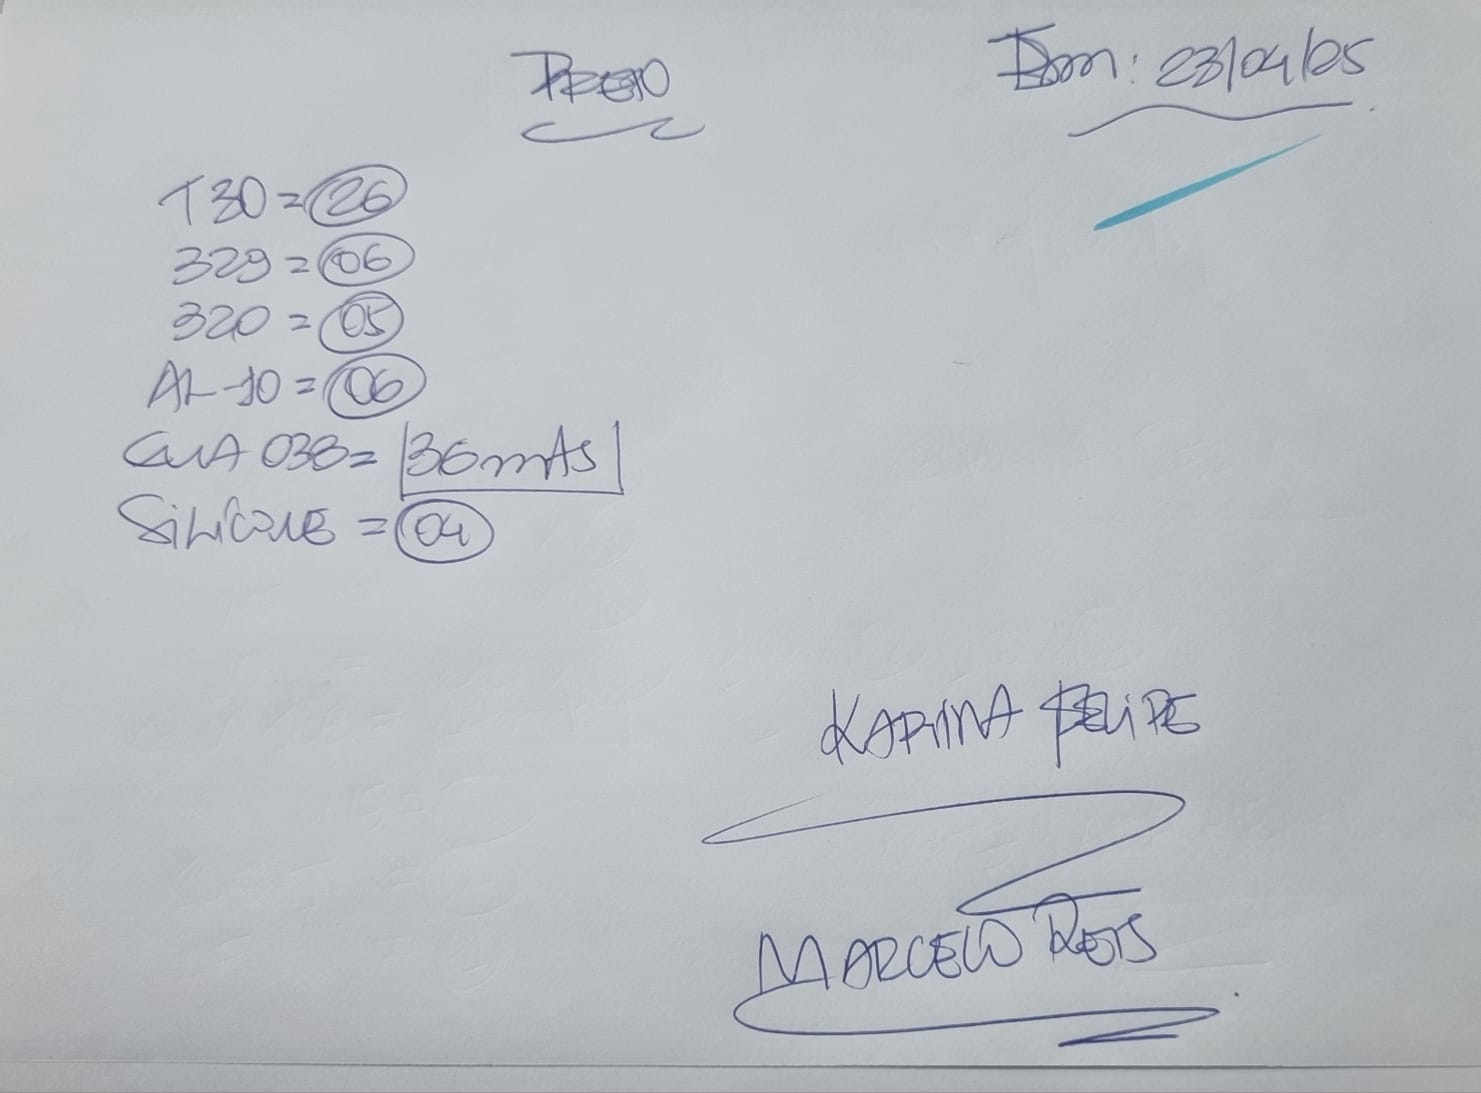 PRETO
Em: 23/04/25
T30 = 26
329 = 06
320 = 05
AL-10 = 06
GUA 038 = 36 mAs
SILICONE = 04
KARINA FELIPE
MARCELO REIS